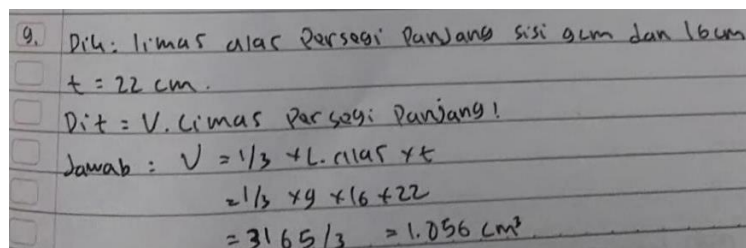 9. Dik: limas alas Persegi Panjang sisi 9cm dan 16cm
t = 22 cm.
Dit = V. Limas Persegi Panjang!
Jawab : V = 1/3 x L. alas x t
= 1/3 x 9 x 16 x 22
= 3165/3 = 1.056 cm³